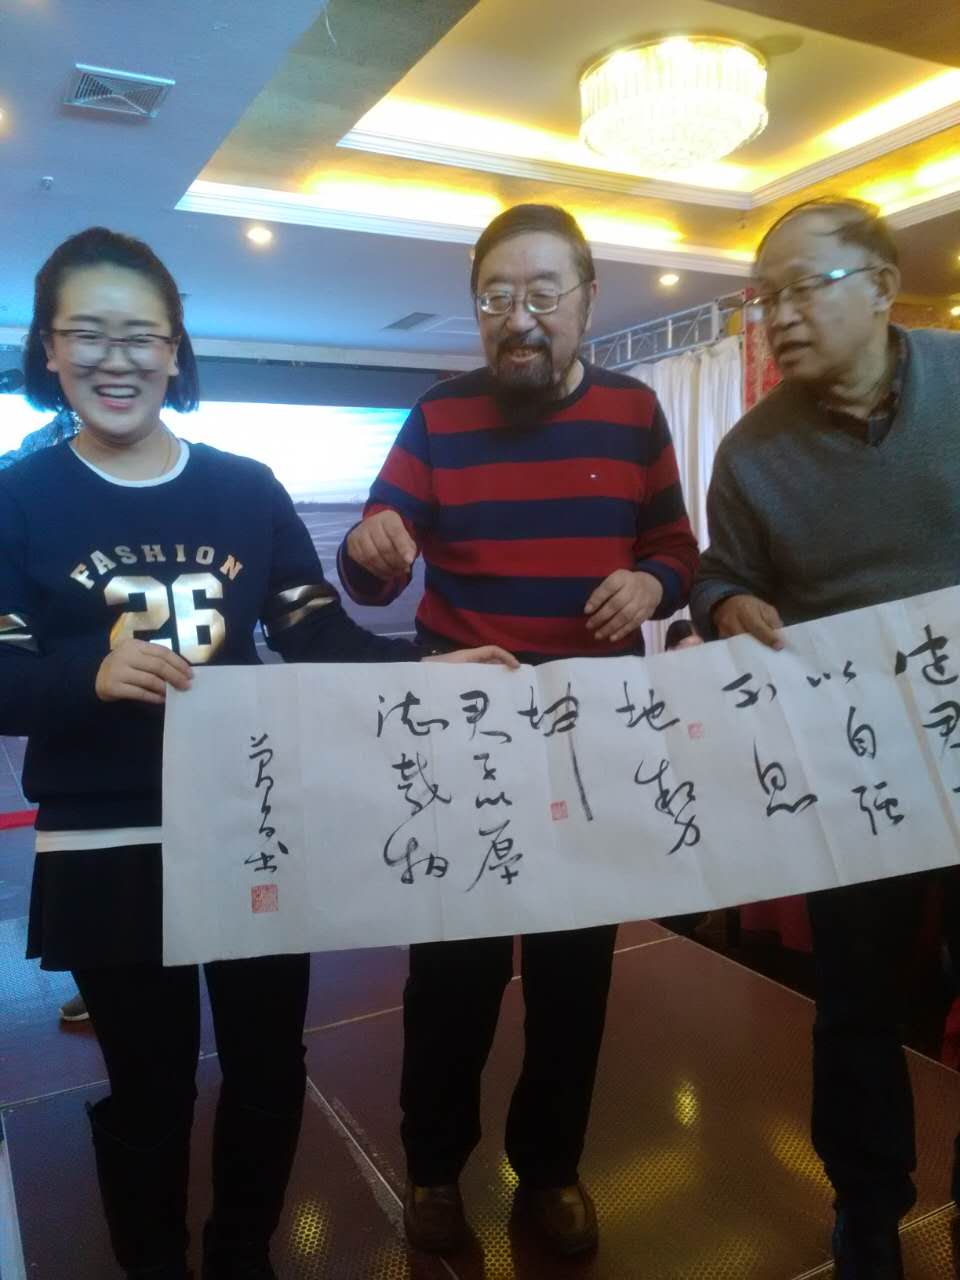 FASHION
26
健君
以自强
不息
地势
坤
君子以厚
德载物